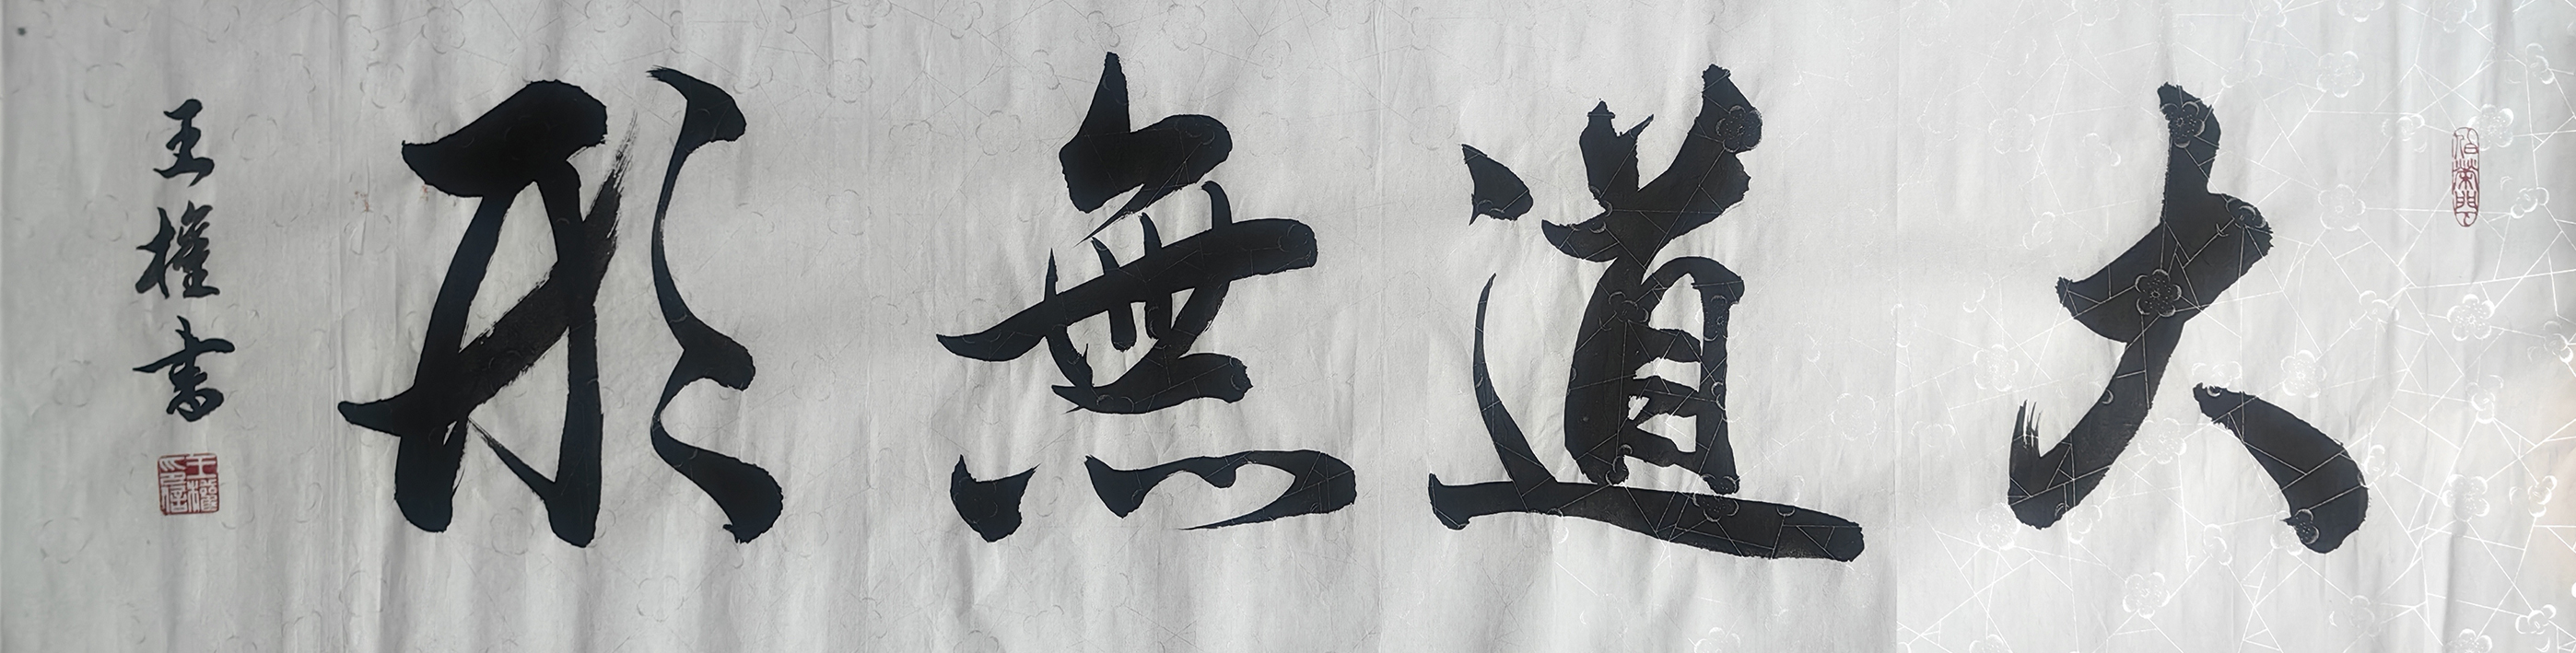 大道無形
王權書
王權印